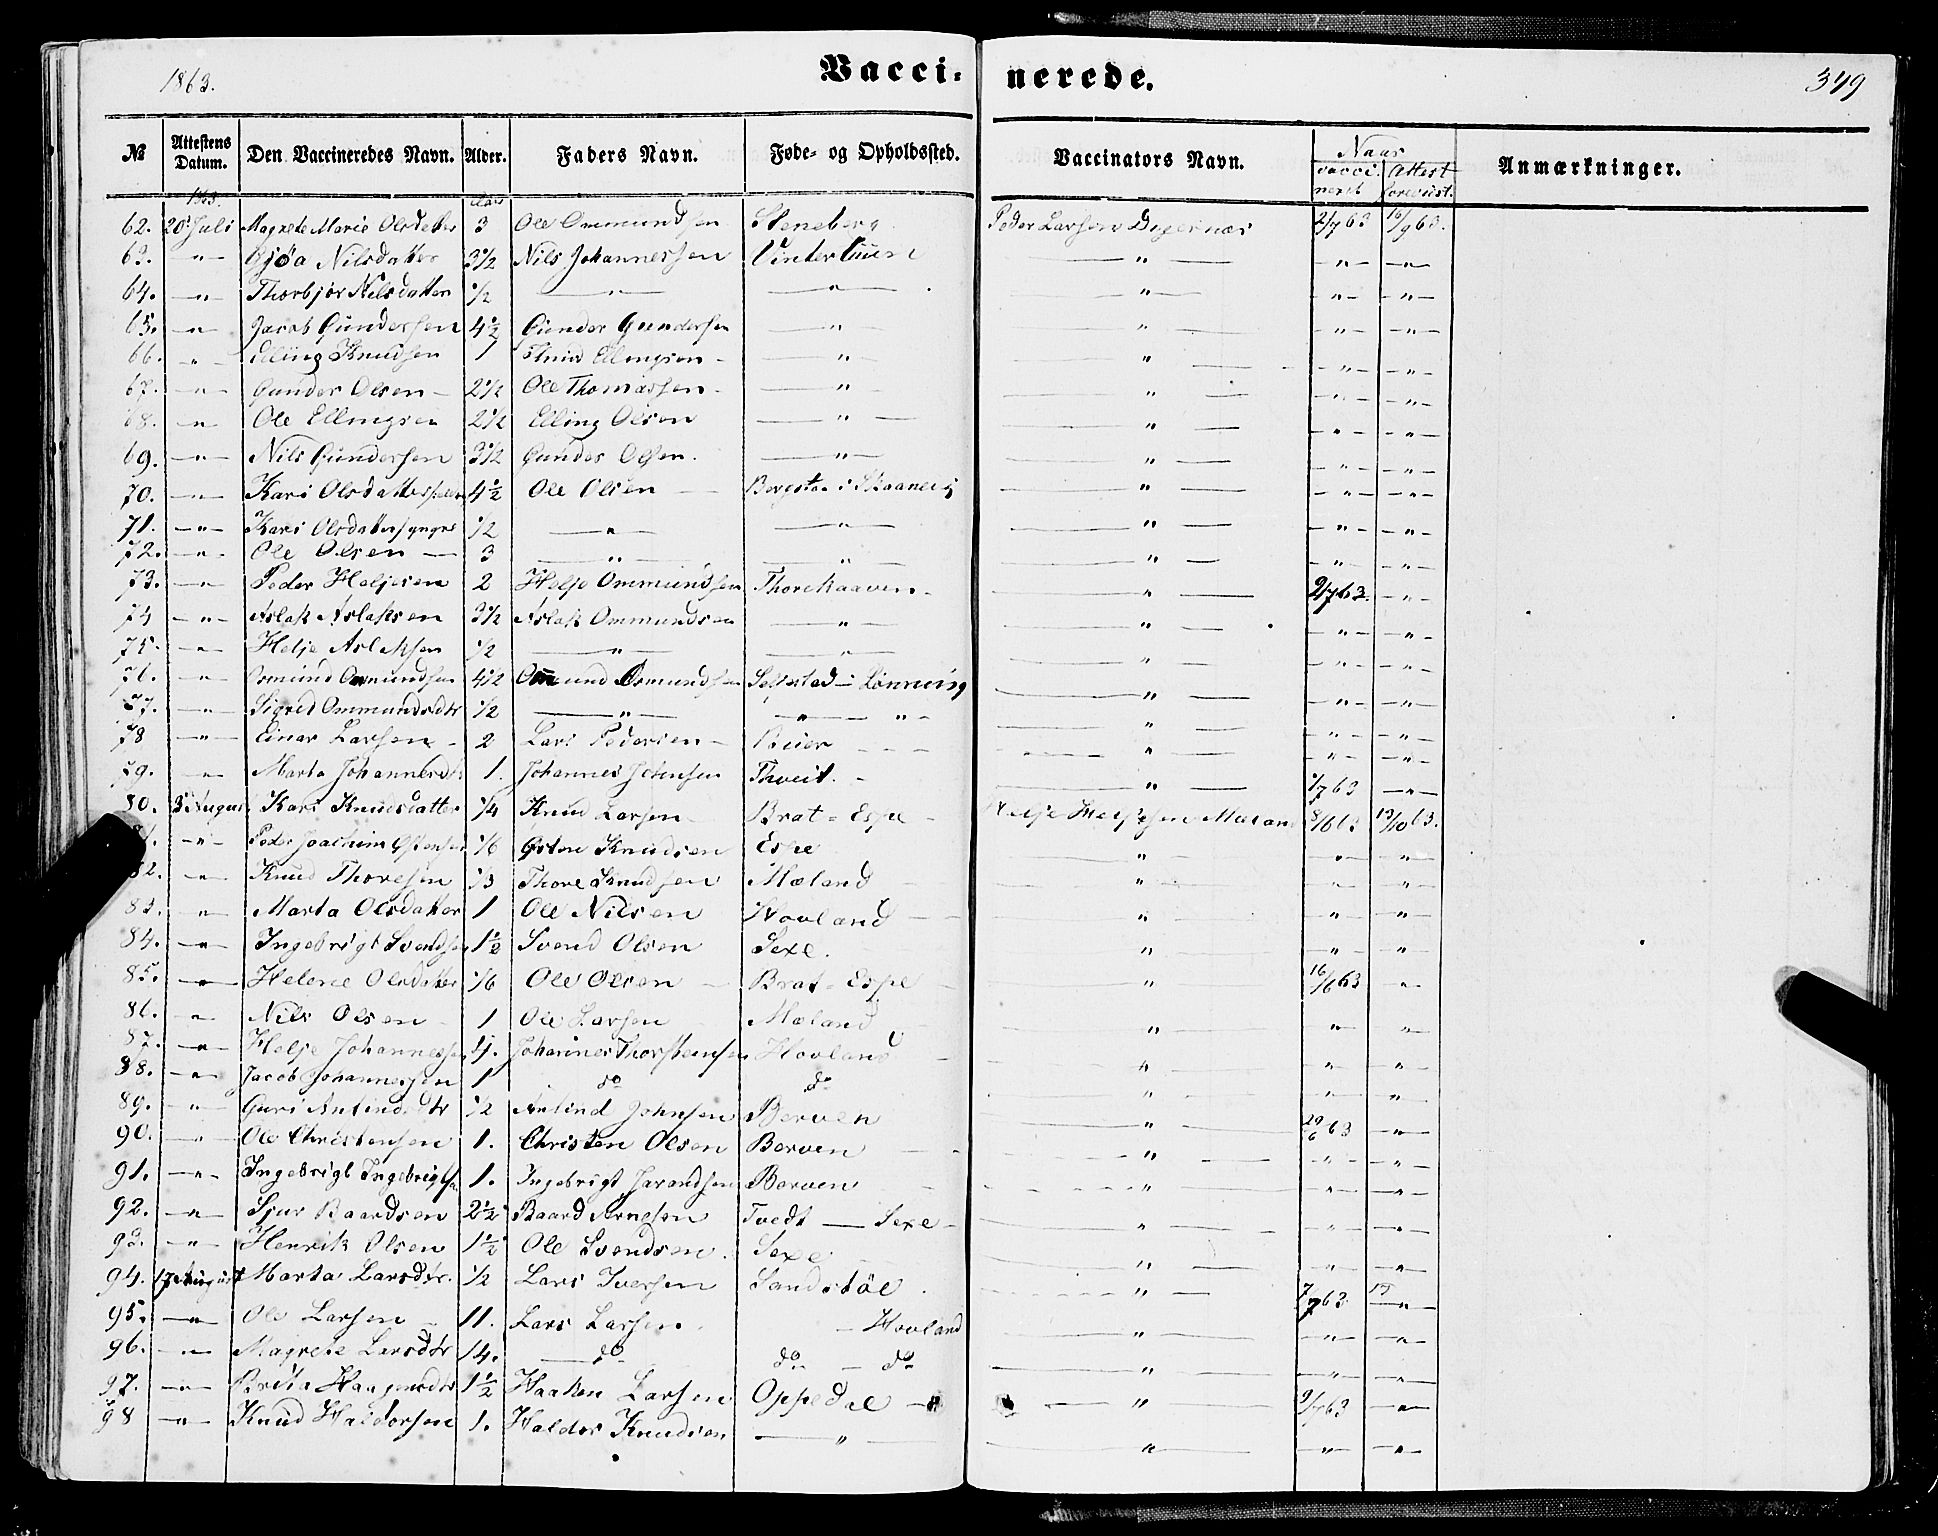 1863. Vacci- nerede. 349
№ Attestens Datum. Den Vaccineredes Navn. Alder. Faders Navn. Føde- og Opholdssted. Vaccinators Navn. Naar vaccineret Attest forevist. Anmærkninger.
1863. Aar
62. 20 Juli Magrete Marie Olsdatter 3 Ole Ommundsen Steneberg Peder Larsen 2/7 63 16/9 63.
63. —"— Gjøa Nilsdatter 3 1/2 Nils Johannessen —"— —"— —"—
64. —"— Thorbjør Nilsdatter 1/2 —"— —"— —"— —"— —"—
65. —"— Jacob Gundersen 4 1/2 Gunder Gundersen —"— —"— —"— —"—
66. —"— Elling Knudsen 1 Knud Ellingsen —"— —"— —"— —"—
67. —"— Gunder Olsen 2 1/2 Ole Thomassen —"— —"— —"— —"—
68. —"— Ole Ellingsen 2 1/2 Elling Olsen —"— —"— —"— —"—
69. —"— Nils Gundersen 3 1/2 Gunder Olsen. —"— —"— —"— —"—
70. —"— Kari Olsdatter 4 1/2 Ole Olsen i Skaanevig —"— —"— —"—
71. —"— Kari Olsdatter yngre 1/2 —"— —"— —"— —"— —"—
72. —"— Ole Olsen 3 —"— —"— —"— —"— —"—
73. —"— Peder Heljesen 2 Helje Ommundsen —"— 2/7 63. —"—
74 —"— Aslak Aslaksen 3 1/2 Aslak Ommundsen —"— —"— —"— —"—
75. —"— Helje Aslaksen 1/2 —"— —"— —"— —"— —"—
76. —"— Osmund Osmundsen 4 1/2 Osmund Osmundsen —"— —"— —"—
77. —"— Sigrid Ommundsdtr 1/2 —"— —"— —"— —"— —"— —"—
78 —"— Einar Larsen 2 Lars Pedersen Buer —"— —"— —"—
79. —"— Marta Johannesdtr 1. Johannes Thveit. —"— 1/7 63 —"—
80. 3 August Kari Knudsdatter 1/4 Knud Larsen Brat-Espe Helje Heljesen Mæland 8/6 63 13/10 63.
81. —"— Peder Joachim Østensen 1/6 Østen Knudsen Espe —"— —"— —"—
82. —"— Knud Thoresen 1/3 Thore Knudsen Mæland —"— —"— —"—
83. —"— Marta Olsdatter 1 Ole Nilsen Hovland —"— —"— —"—
84. —"— Ingebrigt Svendsen 1 1/2 Svend Olsen Sexe. —"— —"— —"—
85. —"— Helene Olsdatter 1/6 Ole Olsen Brat-Espe —"— 16/6 63 —"—
86. —"— Nils Olsen 1 Ole Larsen Mæland —"— —"— —"—
87. —"— Helje Johannessen 4. Johannes Thorsteinsen Hovland —"— —"— —"—
88. —"— Jacob Johannessen 1 do do —"— —"— —"—
89. —"— Guri 1/2 Johnsen Berven —"— 29/6 63 —"—
90. —"— Ole Christensen 1. Christen Olsen Berven —"— —"— —"—
91. —"— Ingebrigt Ingebrigtsen 1. Ingebrigt Jarandsen Berven —"— —"— —"—
92. —"— Sjur Baardsen 2 1/2 Baard Arnesen Tvedt — Sexe —"— —"— —"—
93. —"— Henrik Olsen 1 1/2 Ole Svendsen. Sexe —"— —"— —"—
94. 17 August Marta Larsdtr. 1/2 Lars Iversen Sandstøl. —"— 7/7 63 —"—
95. —"— Ole Larsen 11. Lars Larsen. — Hovland —"— —"— —"—
96. —"— Magrete Larsdtr 14. do do — do —"— —"— —"—
97. —"— Brita 1 1/2 Haaken Larsen Oppedal —"— —"— 9/7 63 —"—
98 —"— Knud Haldorsen 1. Haldor Knudsen —"— —"— —"— —"—